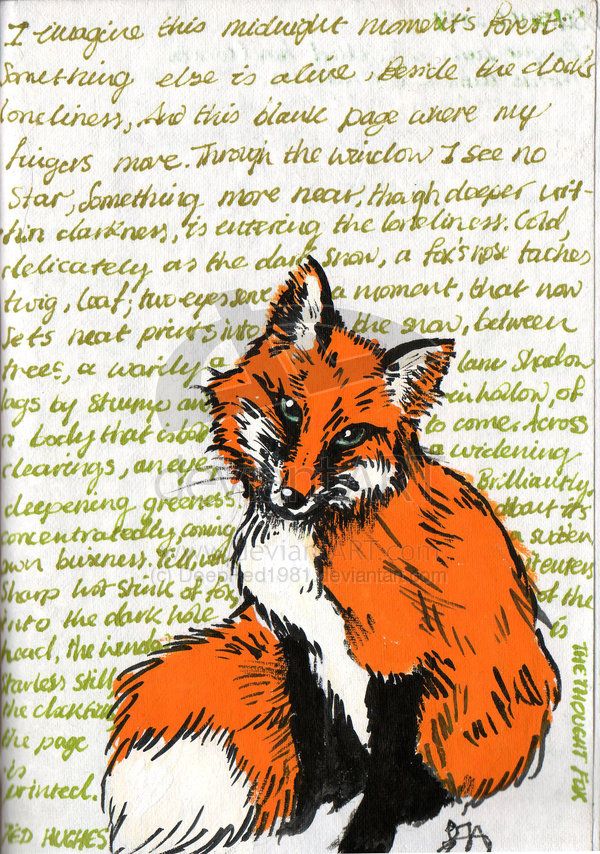 I imagine this midnight moment's forest:
Something else is alive, Beside the clock's
loneliness, And this blank page where my
fingers move. Through the window I see no
star, Something more near, though deeper wit-
hin darkness, is entering the loneliness. Cold,
delicately as the dark snow, a fox's nose toches
twig, leaf; two eyes serve a moment, that now
sets neat prints into the snow, between
trees, a warily a lame Shadow
lags by stump an in hollow, of
a body that is bold to come. Across
clearings, an eye, a widening
deepening greeness, Brilliantly,
concentratedly, coming about its
own buisness. Till, a sudden
Sharp hot stink of fox
into the dark hole of the
head, the is
starless still
the
the page
is
printed.
TED HUGHES
THE THOUGHT FOX
deviantART
www.deviantART.com